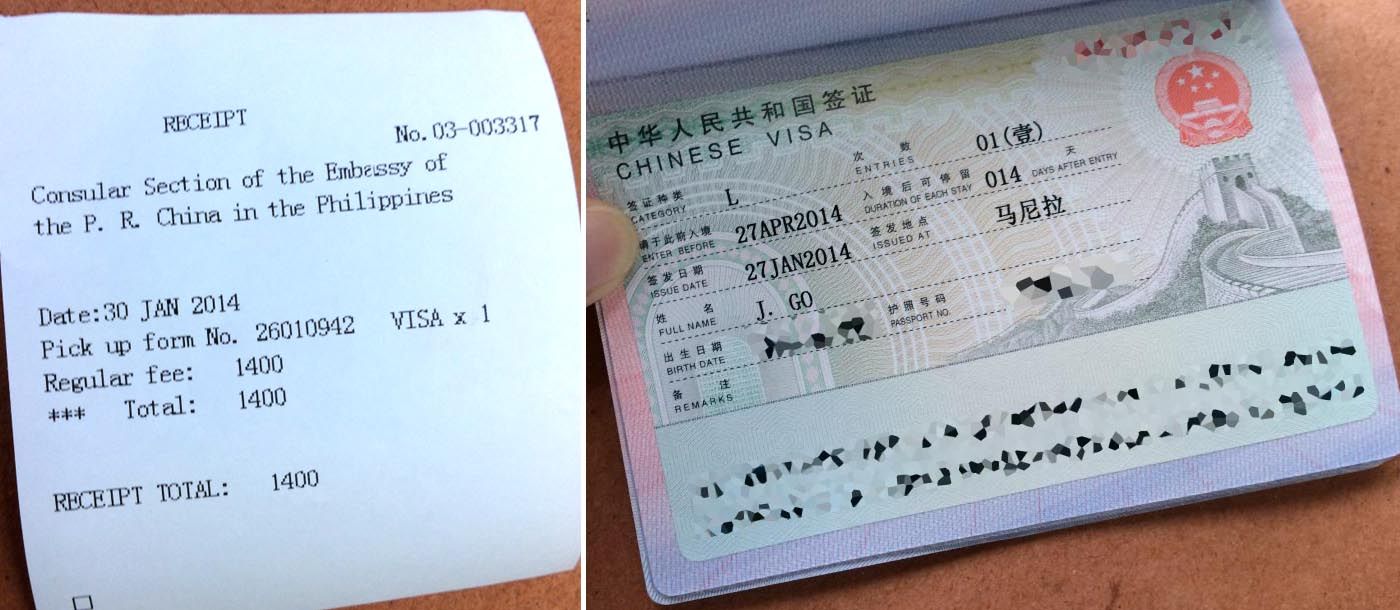 RECEIPT
No.03-003317
Consular Section of the Embassy of
the P. R. China in the Philippines
Date:30 JAN 2014
Pick up form No. 26010942 VISA x 1
Regular fee: 1400
*** Total: 1400
RECEIPT TOTAL: 1400
中华人民共和国签证
CHINESE VISA
签证种类 CATEGORY L
次数 ENTRIES 01(壹)
请于此前入境 ENTER BEFORE 27APR2014
入境后可停留 DURATION OF EACH STAY 014 天 DAYS AFTER ENTRY
签发日期 ISSUE DATE 27JAN2014
签发地点 ISSUED AT 马尼拉
姓名 FULL NAME J. GO
护照号码 PASSPORT NO.
出生日期 BIRTH DATE
备注 REMARKS